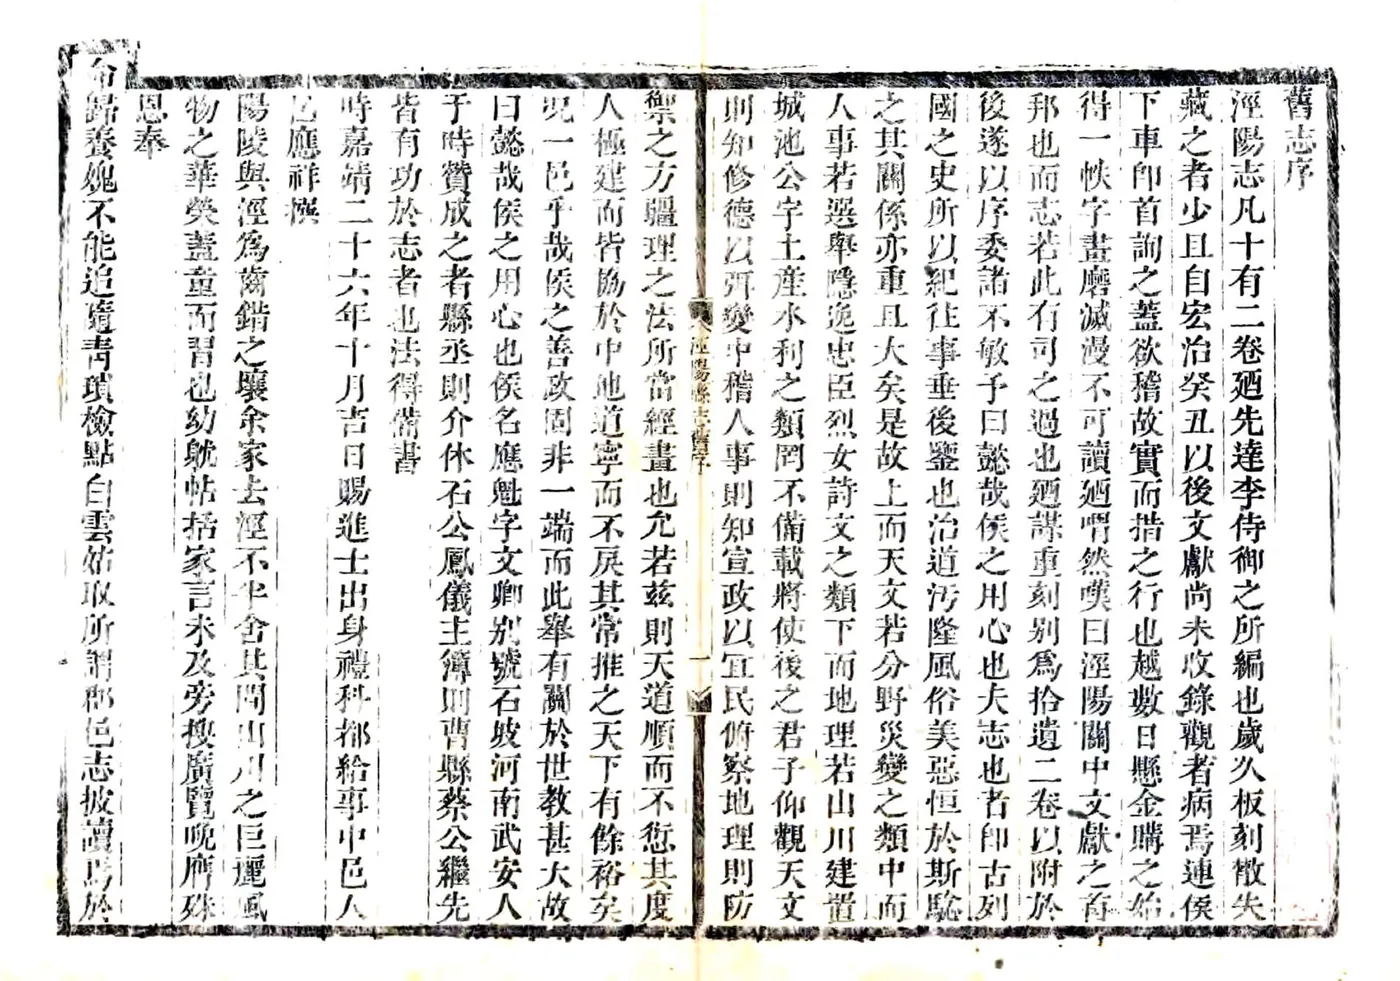 舊志序
涇陽志凡十有二卷廼先達李侍御之所編也歲久板刻散失
藏之者少且自宏治癸丑以後文獻尚未收錄觀者病焉連侯
下車卽首詢之蓋欲稽故實而措之行也越數日懸金購之始
得一帙字畫磨滅漫不可讀廼喟然嘆曰涇陽關中文獻之首
邦也而志若此有司之過也廼謀重刻别爲拾遺二卷以附於
後遂以序委諸不敏予曰懿哉侯之用心也夫志也者卽古列
國之史所以紀往事垂後鑒也治道汚隆風俗美惡恒於斯騐
之其關係亦重且大矣是故上而天文若分野災變之類中而
人事若選舉隱逸忠臣烈女詩文之類下而地理若山川建置
城池公宇土産水利之類罔不備載將使後之君子仰觀天文
則知修德以弭變中稽人事則知宣政以宜民俯察地理則防
涇陽縣志舊序
一
禦之方疆理之法所當經畫也允若兹則天道順而不愆其度
人極建而皆協於中地道寧而不戾其常推之天下有餘裕矣
况一邑乎哉侯之善政固非一端而此舉有關於世教甚大故
曰懿哉侯之用心也侯名應魁字文卿别號石坡河南武安人
于時贊成之者縣丞則介休石公鳳儀主簿則曹縣蔡公繼先
皆有功於志者也法得備書
時嘉靖二十六年十月吉日賜進士出身禮科都給事中邑人
呂應祥撰
陽陵與涇爲齒錯之壤余家去涇不半舍其間山川之巨麗風
物之華榮蓋童而習也幼躭帖括家言未及旁搜廣覽晩膺殊
恩奉
命歸養媿不能追隨靑瑣檢點白雲姑取所謂郡邑志披讀焉於